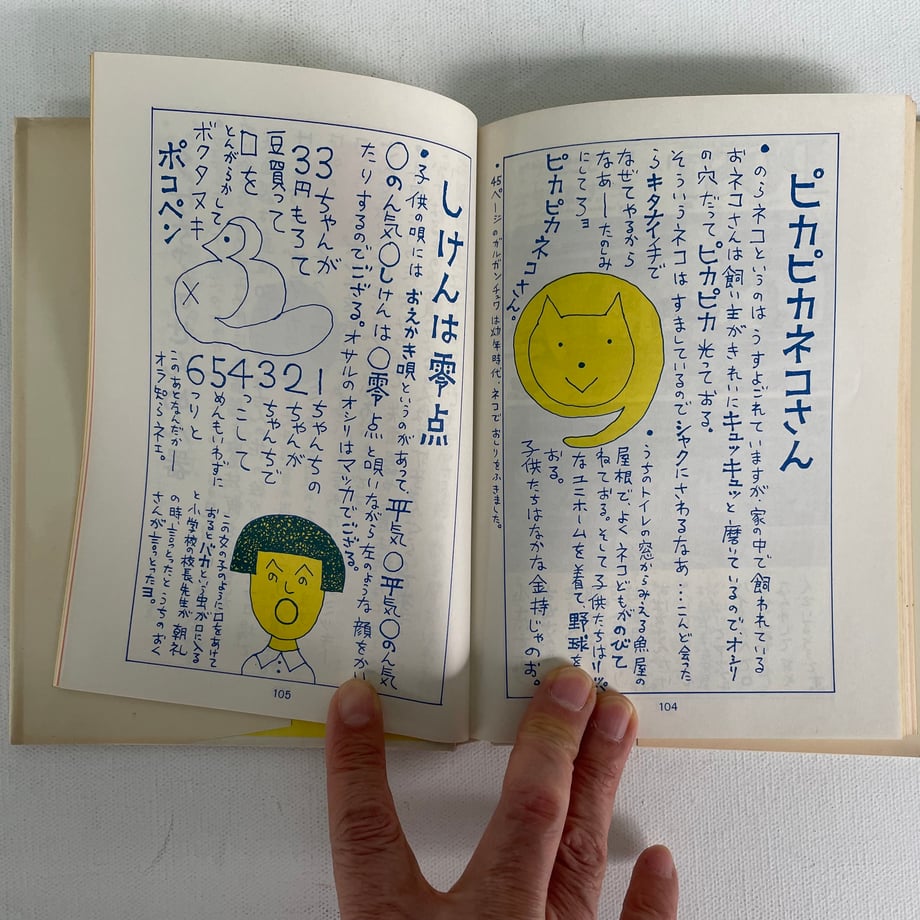 ピカピカネコさん
●のらネコというのはうすよごれていますが、家の中で飼われている
おネコさんは飼い主がきれいにキュッキュッと磨いているのでオシリ
の穴だってピカピカ光っておる。
そういうネコはすましているのでシャクにさわるなあ…こんど会った
らキタナイ手で
なぜてやるから
なあーたのみ
にしてろョ
ピカピカネコさん。
●うちのトイレの窓からみえる魚屋の
屋根でよくネコどもがのびて
ねておる。そして子供たちは
なユニホームを着て、野球を
おる。
子供たちはなかな金持じゃのお。
●45ページのガルガンチュワは幼年時代、ネコでおしりをふきました。
104
しけんは零点
●子供の唄にはおえかき唄というのがあって、平気〇平気〇のん気
〇のん気〇しけんは〇零点と唄いながら左のような顔をかい
たりするのでござる。オサルのオシリはマッカでござる。
33ちゃんが
33円もろて
豆買って
口を
とんがらかして
ボクタヌキ
ポコペン
1ちゃんちの
2ちゃんが
3ちゃんで
4っこして
5めんもいわずに
6つりと
このあとなんだがー
オラ知らネエ。
この女の子のように口をあけて
おるとバカという虫が口に入る
と小学校の校長先生が朝礼
の時、言っとったとうちのおく
さんが言っとったヨ。
105